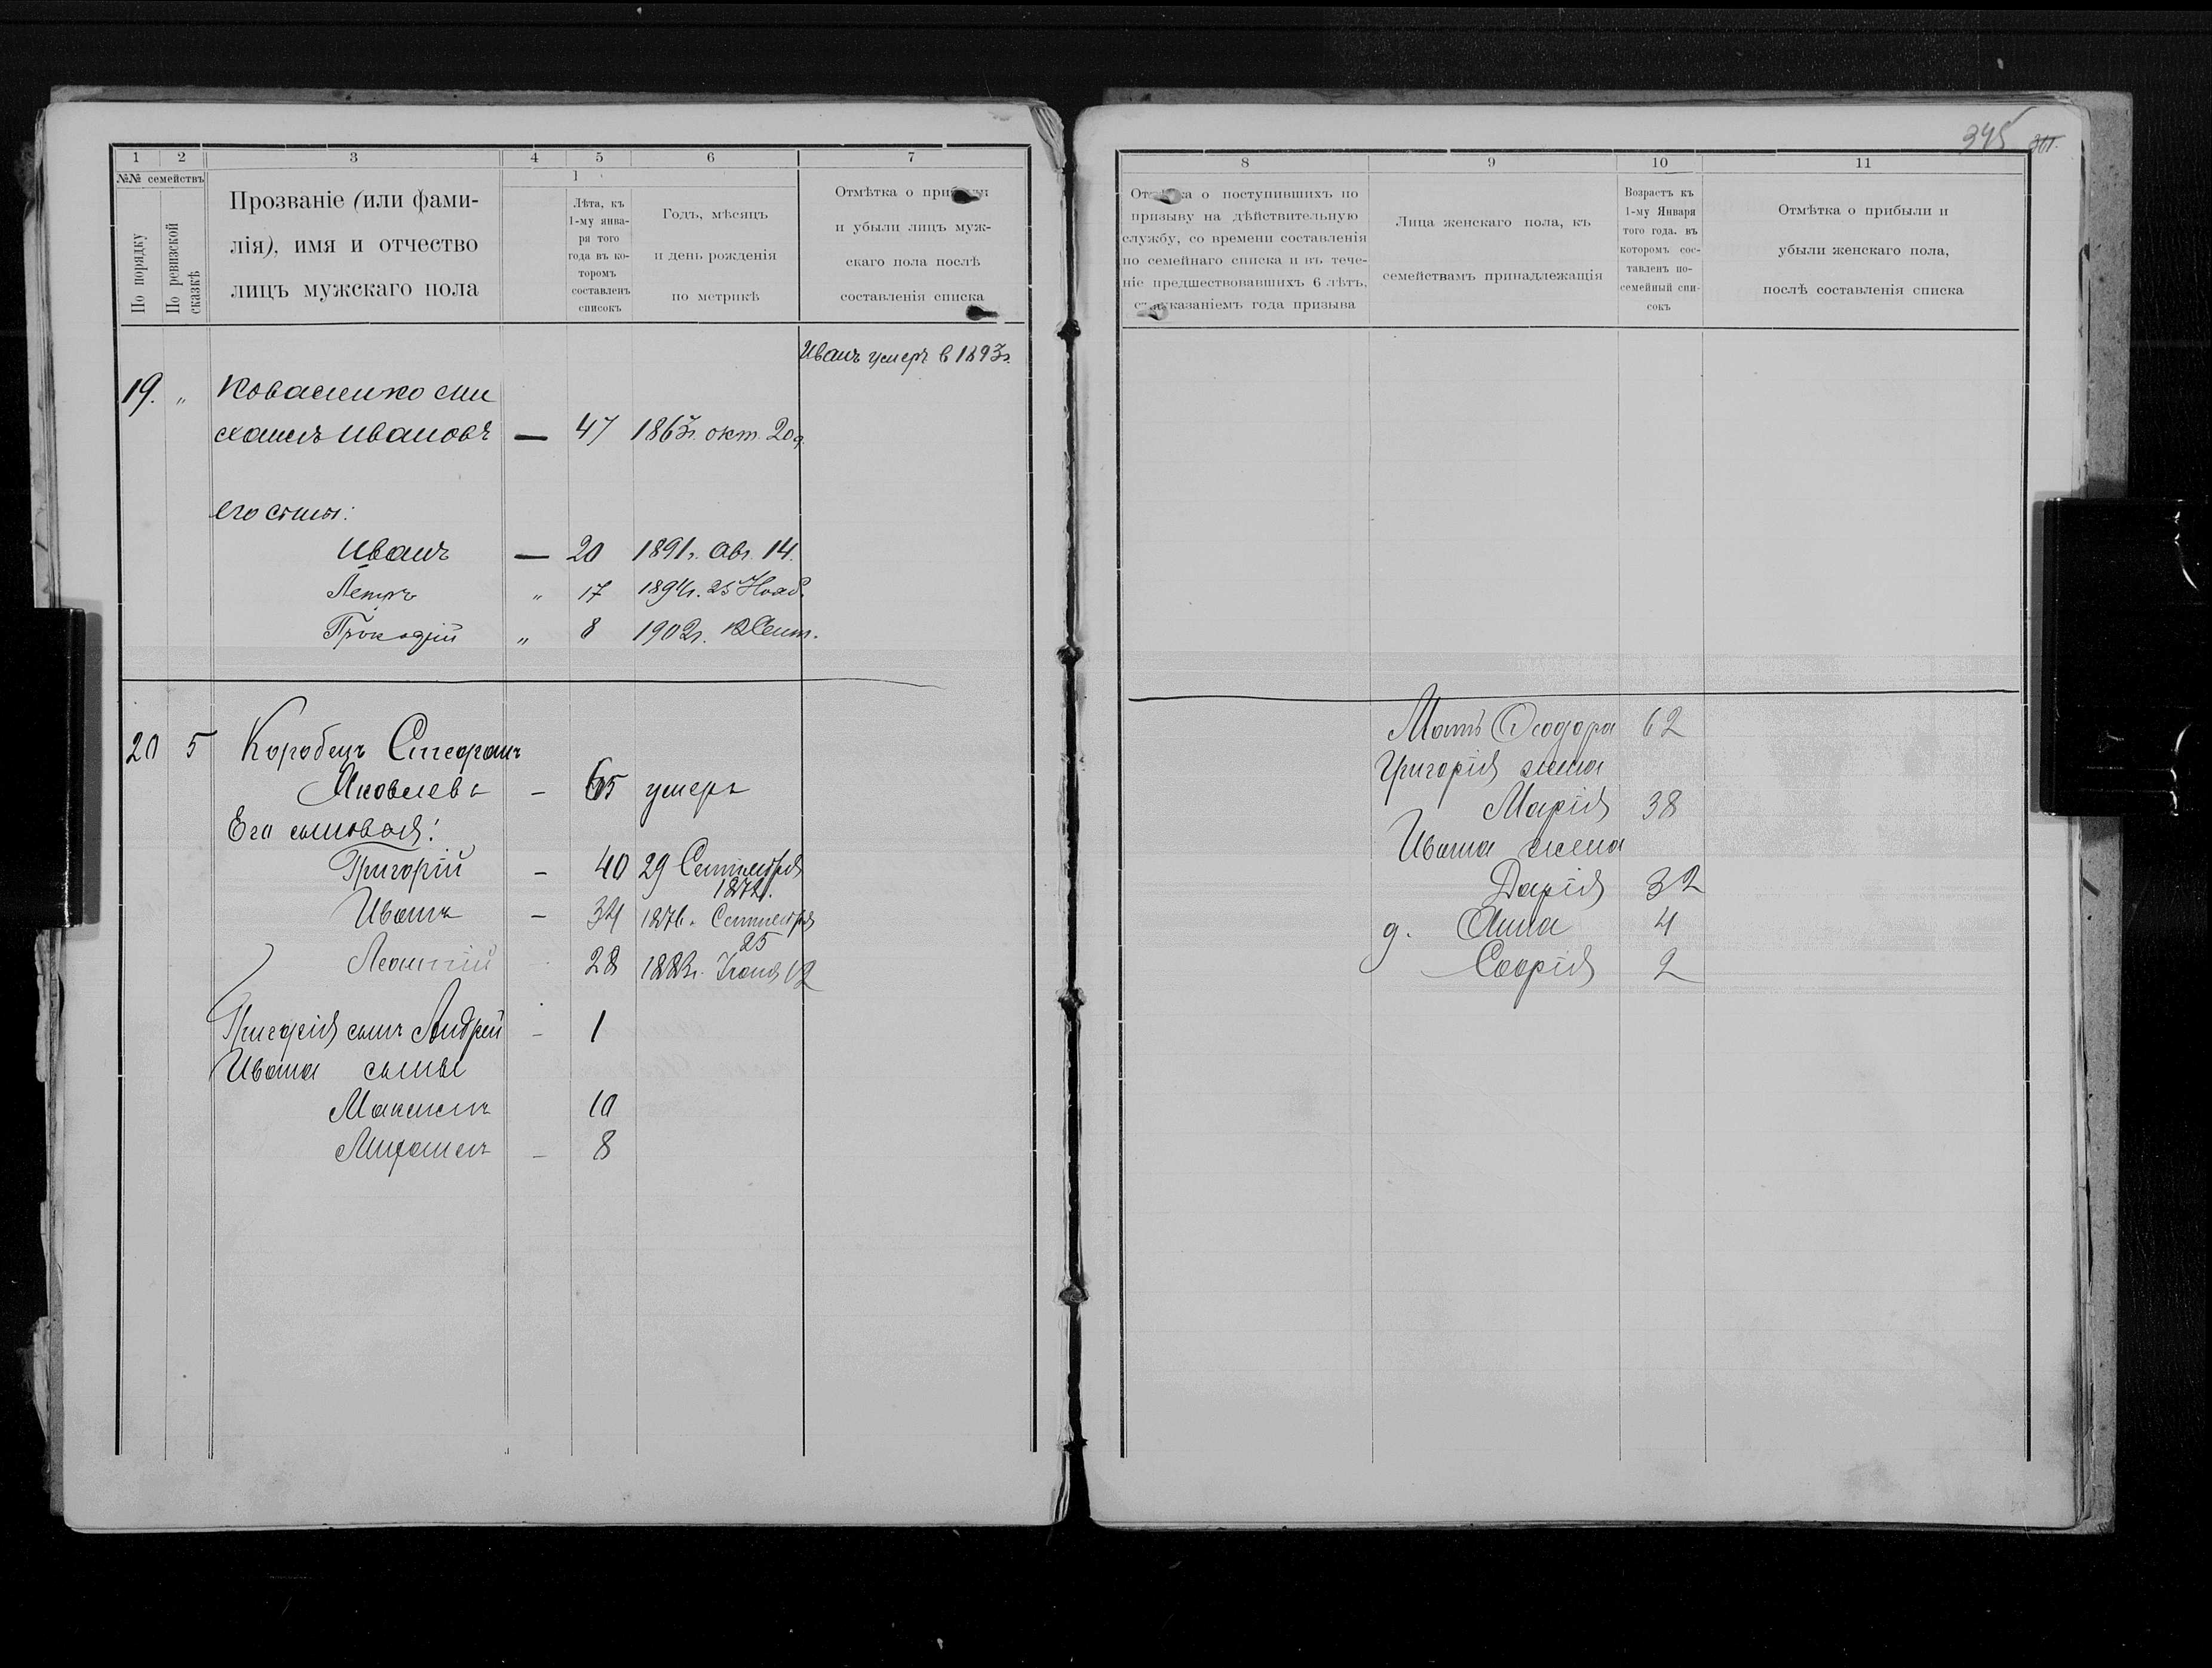 345 301.
1 2 3 4 5 6 7
№№ семействъ
По порядку
По ревизской сказкѣ
Прозваніе (или фами-
лія), имя и отчество
лицъ мужскаго пола
1
Лѣта, къ
1-му янва-
ря того
года въ ко-
торомъ
составленъ
списокъ
Годъ, мѣсяцъ
и день рожденія
по метрикѣ
Отмѣтка о прибыли
и убыли лицъ муж-
скаго пола послѣ
составленія списка
Иванъ умеръ в 1893г.
19. „ Коваленко Ми
хаилъ Ивановъ — 47 1863г. окт. 20д.
его сыны:
Иванъ — 20 1891г. Авг. 14.
Петръ „ 17 1894г. 25 Нояб.
Прокофій „ 8 1902г. 12 Сент.
20 5 Коробецъ Стефанъ
Яковлевъ - 65 умеръ
Его сыновья:
Григорій - 40 29 Сентября
1872г.
Иванъ - 34 1876г. Сентября
25
Леонтій - 28 1883г. 12
Григорія сынъ Андрей - 1
Ивана сыны
Максимъ 10
Митрофанъ - 8
8 9 10 11
Отмѣтка о поступившихъ по
призыву на дѣйствительную
службу, со времени составленія
по семейнаго списка и въ тече-
ніе предшествовавшихъ 6 лѣтъ,
съ указаніемъ года призыва
Лица женскаго пола, къ
семействамъ принадлежащія
Возрастъ къ
1-му Января
того года. въ
которомъ сос-
тавленъ по-
семейный спи-
сокъ
Отмѣтка о прибыли и
убыли женскаго пола,
послѣ составленія списка
Мать Феодора 62
Григорія жена
Марія 38
Ивана жена
Дарія 32
д. Анна 4
Софія 2